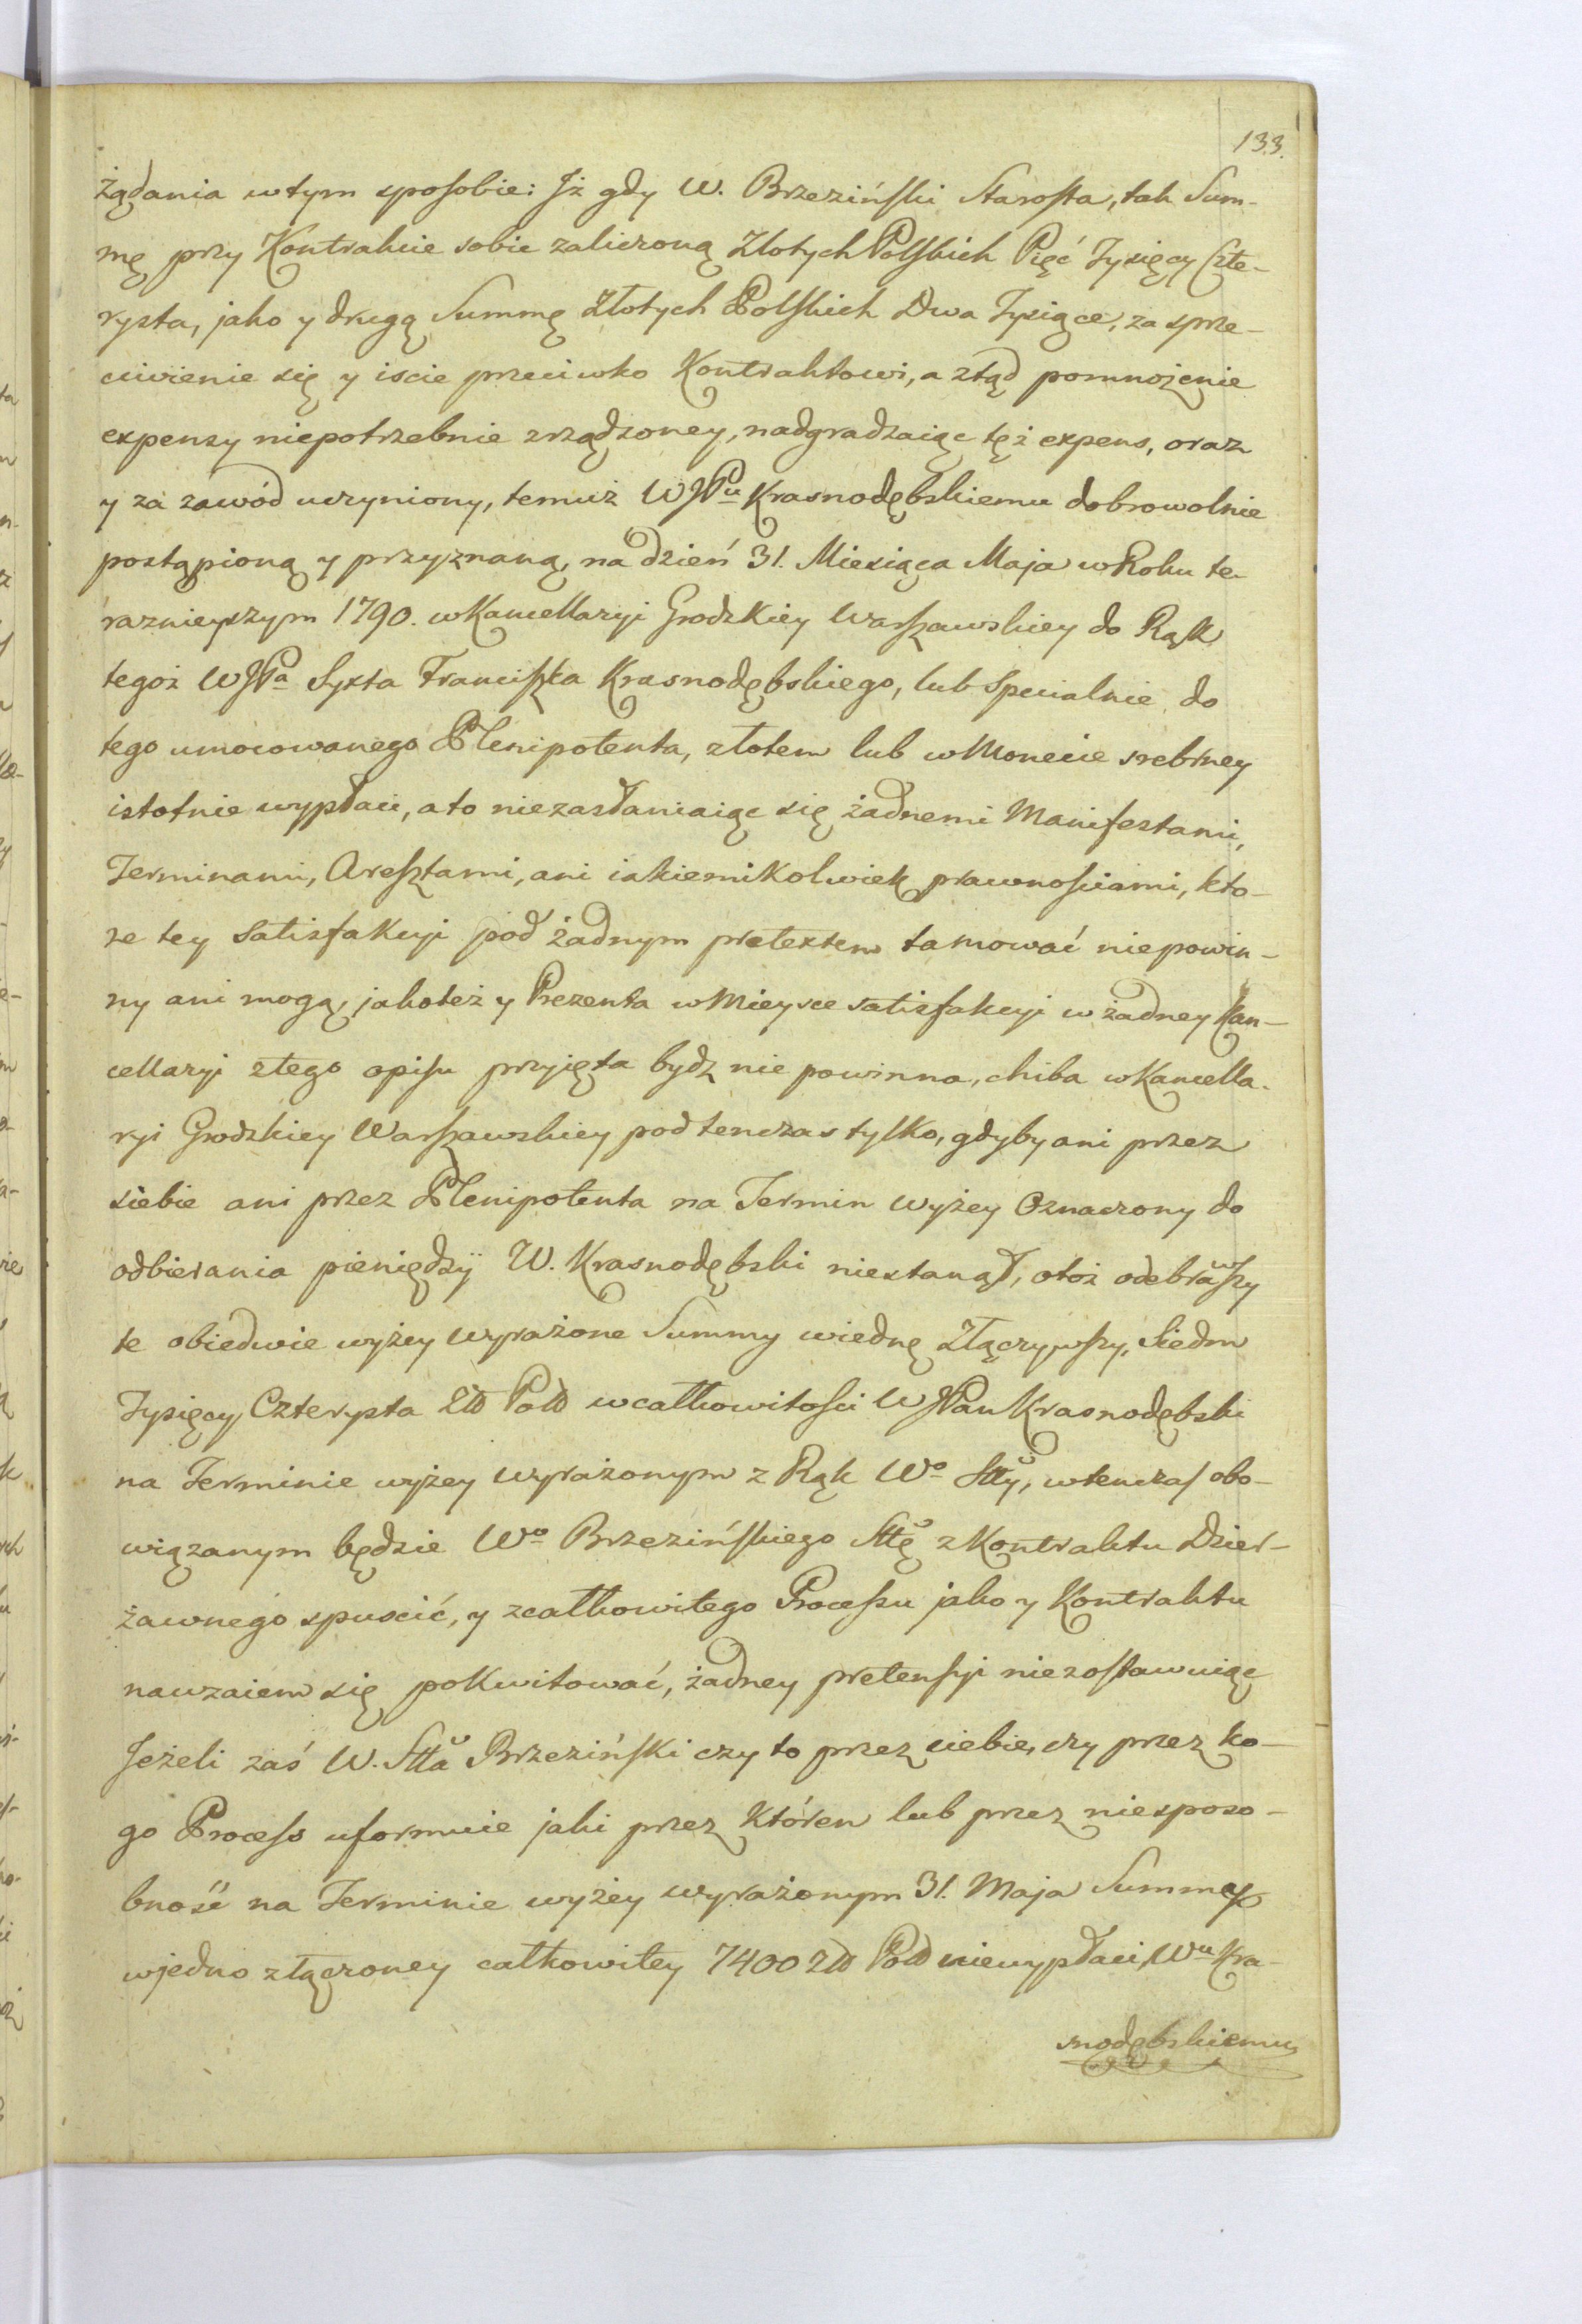 133.
żądania wtym sposobie: Jż gdy W. Brzeziński Starosta, tak Sum-
mę przy Kontrakcie sobie zaliczoną Złotych Polskich Pięć Tysięcy Czte-
rysta, jako y drugą Summę Złotych Polskich Dwa Tysiące, za sprze-
ciwienie się y iscie przeciwko Kontraktowi, a ztąd pomnożenie
expensy niepotrzebnie zrządzoney, nadgradzaiąc tęż expens, oraz
y za zawód uczyniony, temuż WJPu Krasnodębskiemu dobrowolnie
postąpioną y przyznaną, na dzień 31. Miesiąca Maja w Roku te-
raznieyszym 1790. w Kancellaryi Grodzkiey Warszawskiey do Rąk
tegoż WJPa Syxta Franciszka Krasnodębskiego, lub Specialnie do
tego umocowanego Plenipotenta, złotem lub w Monecie srebrney
istotnie wypłaci, a to niezasłaniaiąc się żadnemi Manifestami,
Terminami, Aresztami, ani iakiemikolwiek prawnościami, kto-
re tey Satisfakcyi pod żadnym pretextem tamować niepowin-
ny ani mogą, jakoteż y Prezenta w Mieysce satisfakcyi w żadney Kan-
cellaryi ztego opisu przyięta bydz nie powinna, chiba w Kancella-
ryi Grodzkiey Warszawskiey podtenczas tylko, gdyby ani przez
siebie ani przez Plenipotenta na Termin wyżey Oznaczony do
odbierania pieniędzÿ W. Krasnodębski niestanął, otoż odebrawszy
te obiedwie wyżey wyrażone Summy wiednę złączywszy, Siedm
Tysięcy Czterysta Złł Poll w całkowitości WJPan Krasnodębski
na Terminie wyżey wyrażonym z Rąk Wo Stty, wtenczas obo-
wiązanym będzie Wo Brzezińskiego Sttę z Kontraktu Dzier-
żawnego spuscić, y zcałkowitego Processu jako y Kontraktu
nawzaiem się pokwitować, żadney pretensyi niezostawuiąc
Jeżeli zaś W. Stta Brzeziński czy to przez siebie, czy przez ko-
go Process uformuie jaki przez któren lub przez niesposo-
bność na Terminie wyżey wyrażonym 31. Maja Summy
wjedno złączoney całkowitey 7400 Złł Poll niewypłaci, Wu Kra-
snodębskiemu